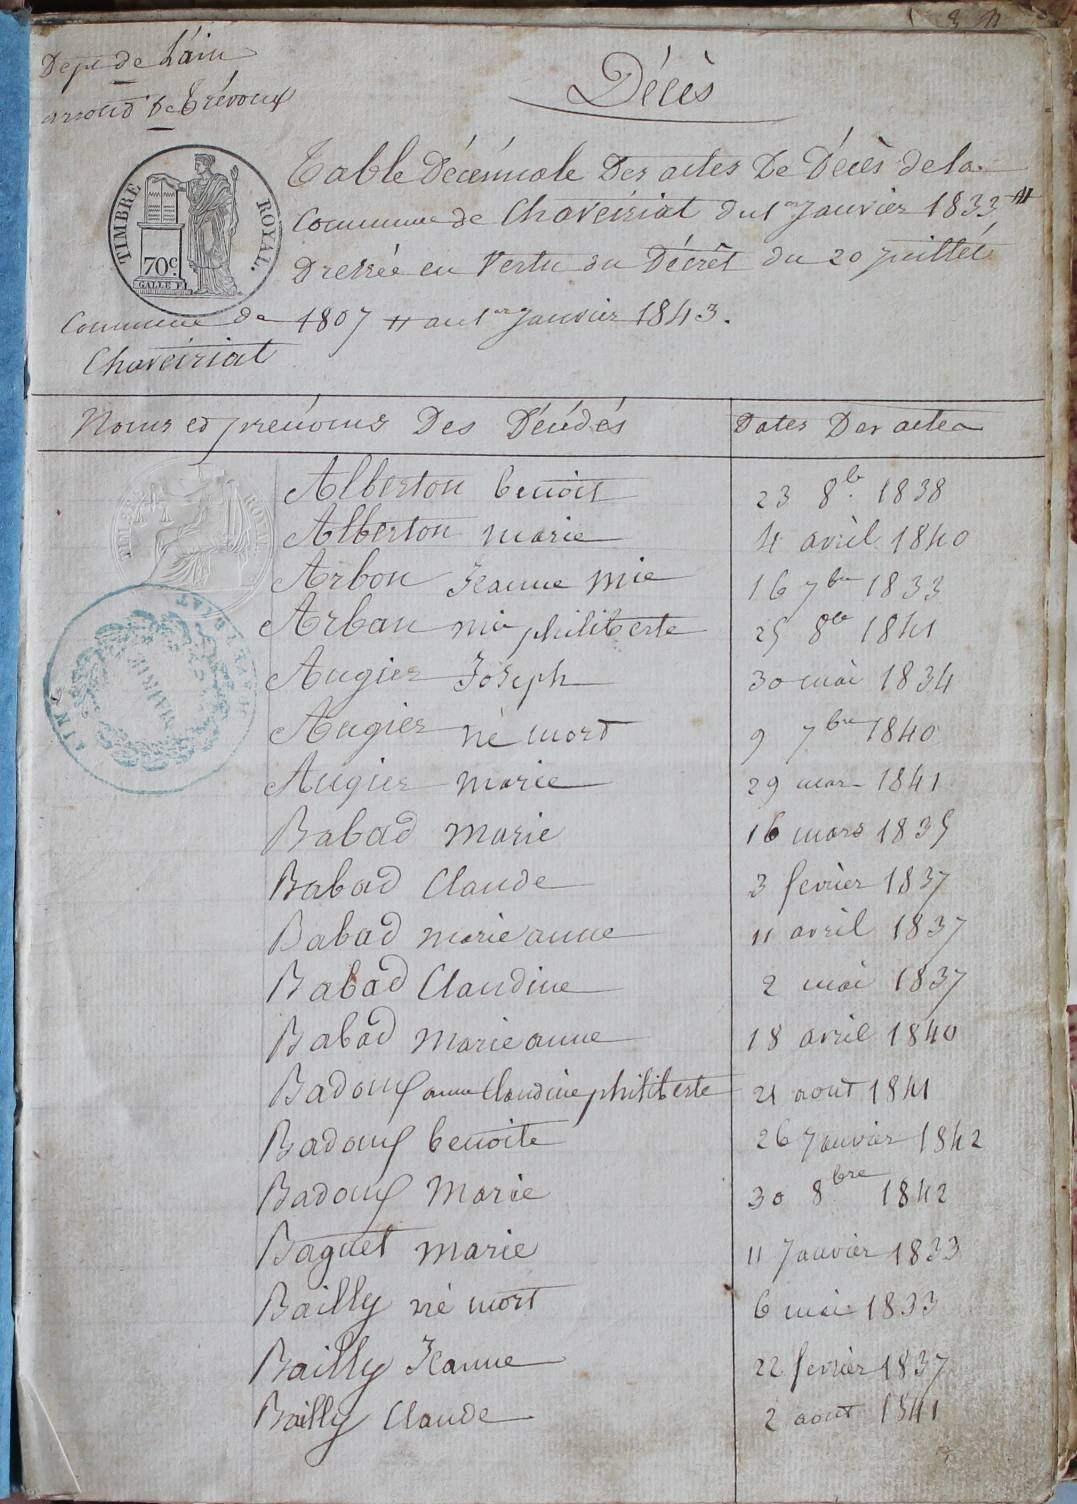 Dept de L'ain
arrond.t de Trévoux
Décès
Table Décennale Des actes De Décès de la
Commune de Chaveiriat du 1er Janvier 1833
Dressée en Vertu du Décrêt du 20 juillet
1807 au 1er Janvier 1843.
TIMBRE ROYAL.
70c
Commune de
Chaveiriat
Noms et prénoms Des Décédés
Dates Des actes
Alberton benoit 23 8b. 1838
Alberton marie 4 avril 1840
Arbon Jeanne Mie 16 7bre 1833
Arban mie philiberte 25 8bre 1841
Augier Joseph 30 mai 1834
Augier né mort 9 7bre 1840
Augier marie 29 mars 1841
Babad marie 16 mars 1835
Babad Claude 3 fevrier 1837
Babad marie anne 11 avril 1837
Babad Claudine 2 mai 1837
Babad marie anne 18 avril 1840
Badoux anne Claudine philiberte 21 aout 1841
Badoux benoite 26 Janvier 1842
Badoux Marie 30 8bre 1842
Baguet marie 11 Janvier 1833
Bailly né mort 6 mai 1833
Bailly Jeanne 22 fevrier 1837
Bailly Claude 2 aout 1841
MAIRIE
AIN